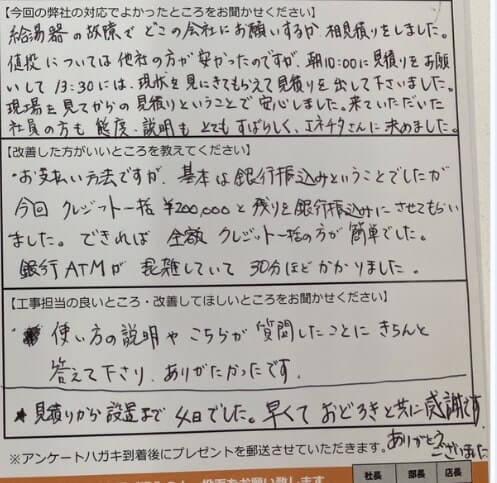 【今回の弊社の対応でよかったところをお聞かせください】
給湯器の故障でどこの会社にお願いするか相見積りをしました。
値段については他社の方が安かったのですが、朝10:00に見積りをお願
いして13:30には、現状を見にきてもらえて見積りを出して下さいました。
現場を見てからの見積りということで安心しました。来ていただいた
社員の方も態度・説明もとてもすばらしく、エネチタさんに決めました。
【改善した方がいいところを教えてください】
・お支払い方法ですが、基本は銀行振込みということでしたが
今回クレジット一括¥200,000と残りを銀行振込みにさせてもらい
ました。できれば全額クレジット一括の方が簡単でした。
銀行ATMが混雑していて30分ほどかかりました。
【工事担当の良いところ・改善してほしいところをお聞かせください】
・使い方の説明やこちらが質問したことにきちんと
答えて下さり、ありがたかったです。
★見積りから設置まで4日でした。早くておどろきと共に感謝です
ありがとう
ございました
※アンケートハガキ到着後にプレゼントを郵送させていただきます。
社長 部長 店長